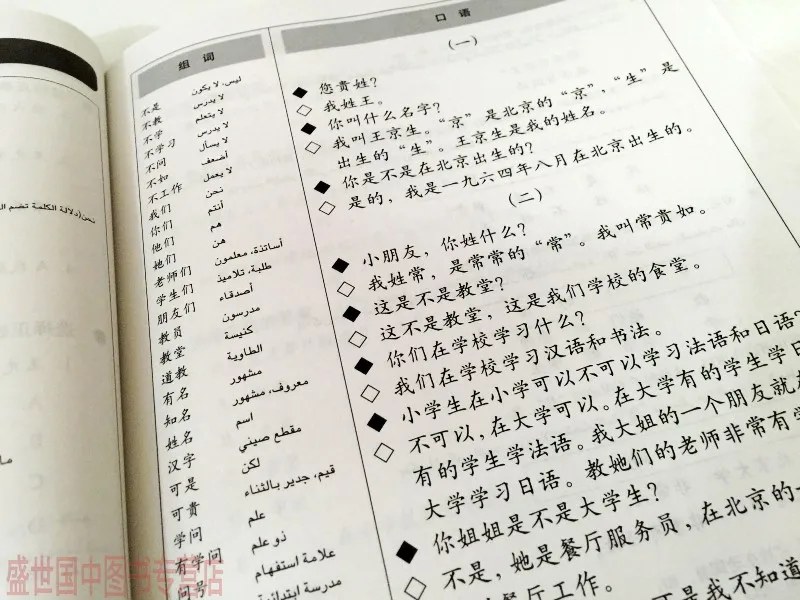 نحن(دلالة الكلمة تضم ال
组词
不是 ليس، لا يكون
不教 لا يدرس
不学 لا يتعلم
不学习 لا يدرس
不问 لا يسأل
不如 أضعف
不工作 لا يعمل
我们 نحن
你们 أنتم
他们 هم
她们 هن
老师们 أساتذة، معلمون
学生们 طلبة، تلاميذ
朋友们 أصدقاء
教员 مدرسون
教堂 كنيسة
道教 الطاوية
有名 مشهور
知名 معروف، مشهور
姓名 اسم
汉字 مقطع صيني
可是 لكن
可贵 قيم، جدير بالثناء
学问 علم
有学问 ذو علم
问号 علامة استفهام
مدرسة ابتدائية
口语
(一)
◆ 您贵姓?
◇ 我姓王。
◆ 你叫什么名字?
◇ 我叫王京生。“京”是北京的“京”,“生”是
出生的“生”。王京生是我的姓名。
◆ 你是不是在北京出生的?
◇ 是的,我是一九六四年八月在北京出生的。
(二)
◆ 小朋友,你姓什么?
◇ 我姓常,是常常的“常”。我叫常贵如。
◆ 这是不是教堂?
◇ 这不是教堂,这是我们学校的食堂。
◆ 你们在学校学习什么?
◇ 我们在学校学习汉语和书法。
◆ 小学生在小学可以不可以学习法语和日语?
◇ 不可以,在大学可以。在大学有的学生学日
有的学生学法语。我大姐的一个朋友就在
大学学习日语。教她们的老师非常有学
◆ 你姐姐是不是大学生?
◇ 不是,她是餐厅服务员,在北京的一
餐厅工作。
可是我不知道
盛世国中图书专营店